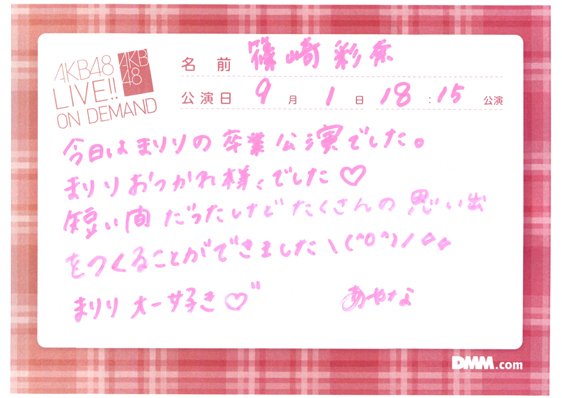 AKB48
LIVE!!
ON DEMAND
AKB
48
名前 篠崎彩奈
公演日 9月1日 18:15 公演
今日はまりりの卒業公演でした。
まりりおつかれ様でした♡
短い間だったけどたくさんの思い出
をつくることができました\(^o^)/
まりり大好き♡
あやな
DMM.com